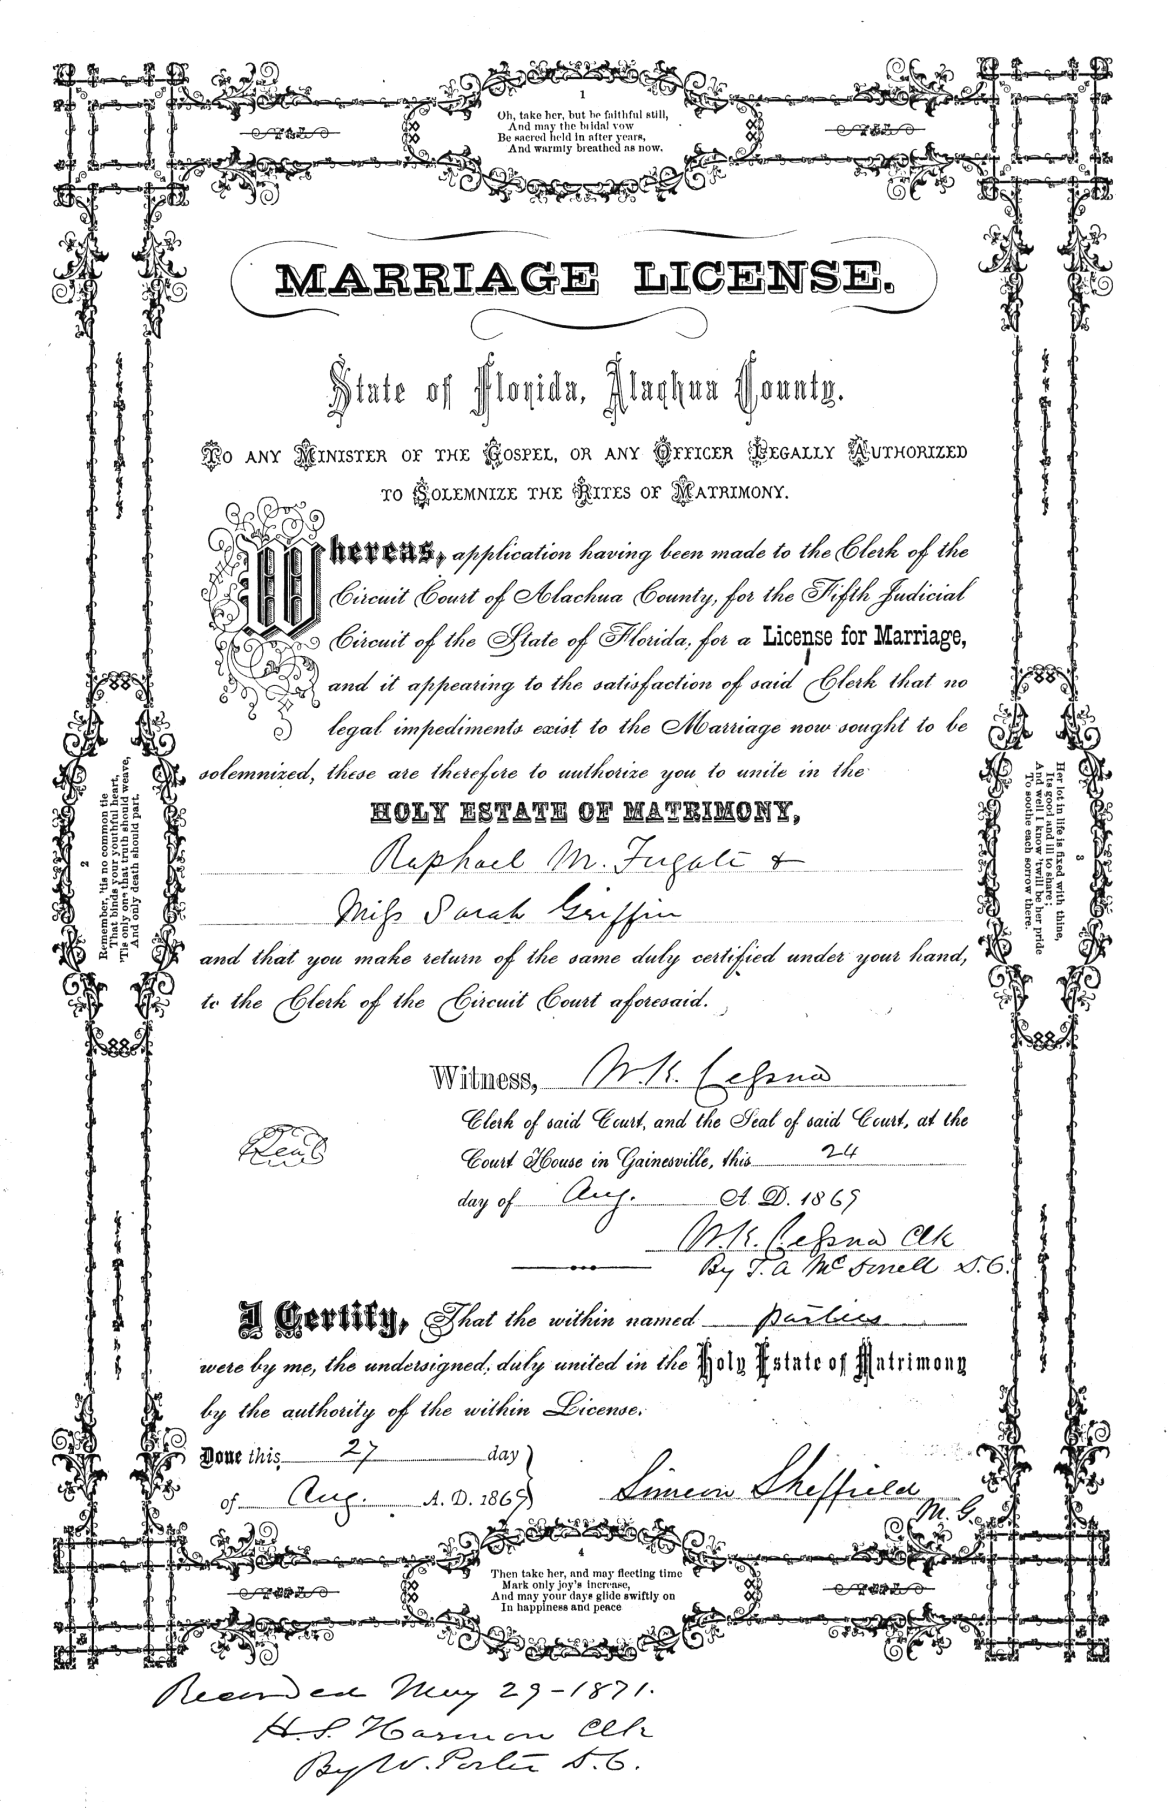 1
Oh, take her, but be faithful still,
And may the bridal vow
Be sacred held in after years,
And warmly breathed as now.
MARRIAGE LICENSE.
State of Florida, Alachua County.
TO ANY MINISTER OF THE GOSPEL, OR ANY OFFICER LEGALLY AUTHORIZED
TO SOLEMNIZE THE RITES OF MATRIMONY.
Whereas, application having been made to the Clerk of the
Circuit Court of Alachua County, for the Fifth Judicial
Circuit of the State of Florida, for a License for Marriage,
and it appearing to the satisfaction of said Clerk that no
legal impediments exist to the Marriage now sought to be
solemnized, these are therefore to authorize you to unite in the
HOLY ESTATE OF MATRIMONY,
Raphael M. Fugate &
Miss Sarah Griffin
and that you make return of the same duly certified under your hand,
to the Clerk of the Circuit Court aforesaid.
2
Remember, 'tis no common tie
That binds your youthful heart,
'Tis only one that truth should weave,
And only death should part.
3
Her lot in life is fixed with thine,
Its good and ill to share;
And well I know 'twill be her pride
To soothe each sorrow there.
Witness, W. K. Cessna
Clerk of said Court, and the Seal of said Court, at the
Seal
Court House in Gainesville, this 24
day of Aug. A. D. 1869
W. K. Cessna Clk
By T. A McDonell D. C.
I Certify, That the within named parties
were by me, the undersigned, duly united in the Holy Estate of Matrimony
by the authority of the within License.
Done this 27 day
of Aug. A. D. 1869
Simeon Sheffield
M. G.
4
Then take her, and may fleeting time
Mark only joy's increase,
And may your days glide swiftly on
In happiness and peace
Recorded May 29-1871.
H. S. Harmon Clk
By W. Porter D. C.